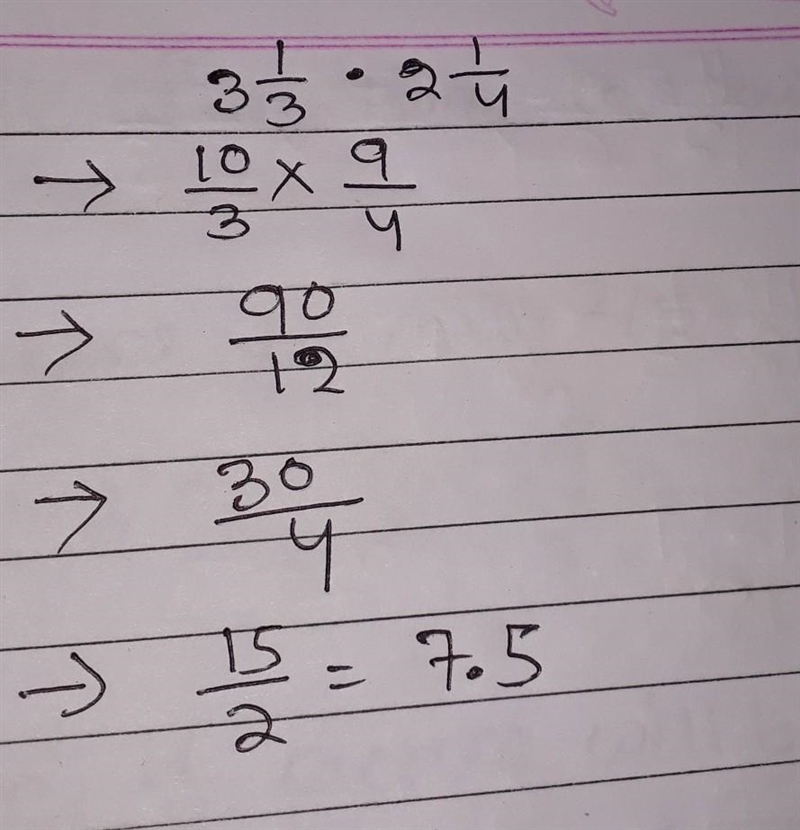 3 1/3 · 2 1/4
→ 10/3 × 9/4
→ 90/12
→ 30/4
→ 15/2 = 7.5